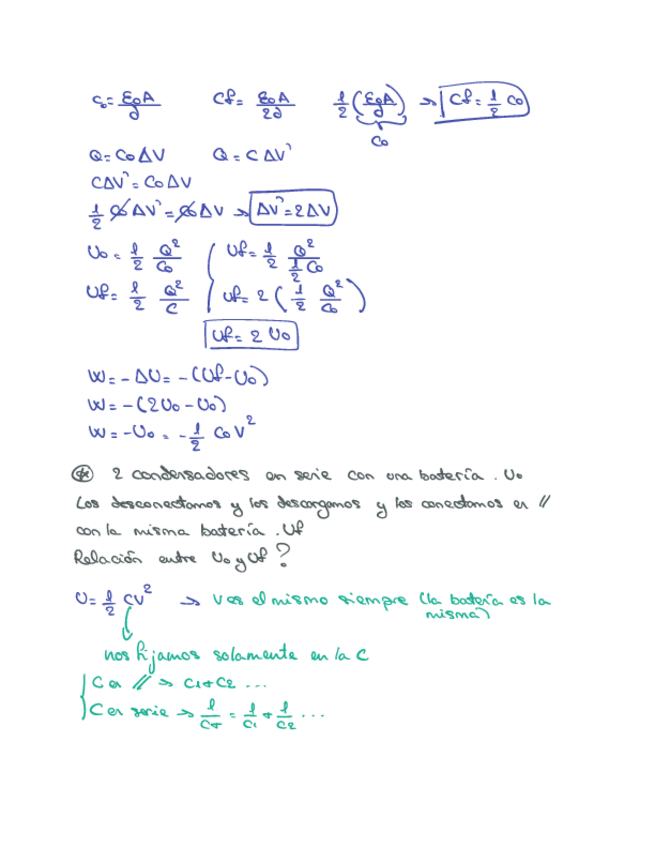 C₀ = ε₀A/d   Cf = ε₀A/2d   1/2 (ε₀A/d) → Cf = 1/2 C₀
C₀
Q = C₀ΔV   Q = CΔV'
CΔV' = C₀ΔV
1/2 C₀ ΔV' = C₀ ΔV → ΔV' = 2ΔV
U₀ = 1/2 Q²/C₀   Uf = 1/2 Q²/(1/2 C₀)
Uf = 1/2 Q²/C   Uf = 2 (1/2 Q²/C₀)
Uf = 2 U₀
W = -ΔU = -(Uf-U₀)
W = -(2U₀-U₀)
W = -U₀ = -1/2 C₀V²
* 2 condensadores en serie con una batería. U₀
Los desconectamos y los descargamos y los conectamos en //
con la misma batería. Uf
Relación entre U₀ y Uf?
U = 1/2 CV² → V es el mismo siempre (la batería es la
misma)
nos fijamos solamente en la C
C en // → C₁+C₂ ...
C en serie → 1/CT = 1/C₁ + 1/C₂ ...